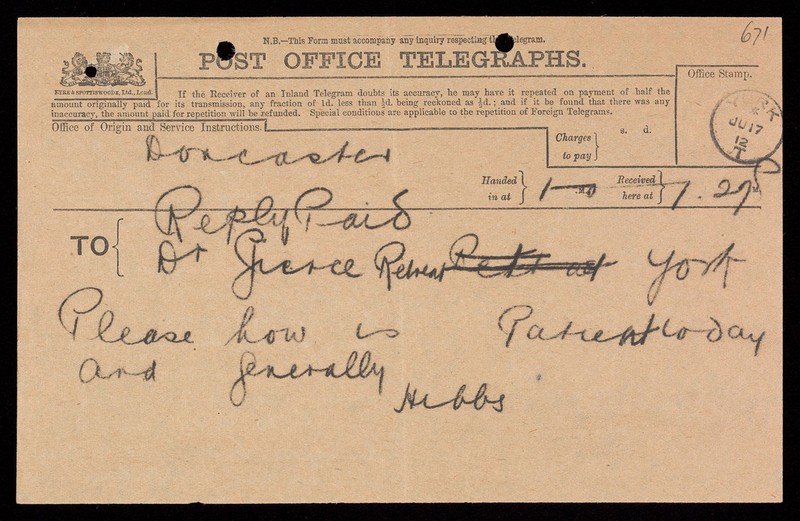 671
N.B.—This Form must accompany any inquiry respecting this Telegram.
POST OFFICE TELEGRAPHS.
EYRE & SPOTTISWOODE, Ltd., Lond.
If the Receiver of an Inland Telegram doubts its accuracy, he may have it repeated on payment of half the
amount originally paid for its transmission, any fraction of 1d. less than ½d. being reckoned as ½d.; and if it be found that there was any
inaccuracy, the amount paid for repetition will be refunded. Special conditions are applicable to the repetition of Foreign Telegrams.
Office Stamp.
YORK
JU 17
12
T
Office of Origin and Service Instructions.
Doncaster
Charges
to pay
s. d.
Handed
in at
1-0
Received
here at
1.27
Reply Paid
TO
Dr Pierce Retreat York
Please how is Patient today
and generally
Hibbs